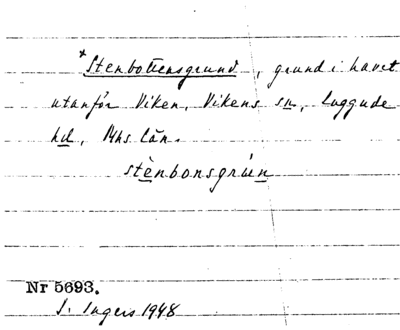 × Stenbottensgrund, grund i havet
utanför Viken, Vikens sn, Luggude
hd, Mhs län.
stènbonsgrùn
Nr 5693.
I. Ingers 1948